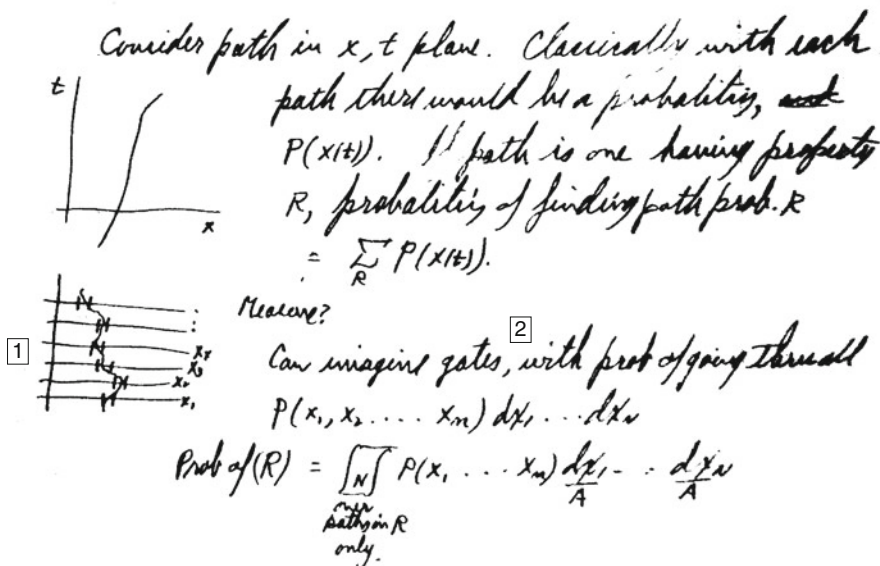 Consider path in x, t plane. Classically with each
t
path there would be a probability,
P(x(t)). If path is one having property
R, probability of finding path prob. R
x
= Σ_R P(x(t)).
Measure?
1
2
x4
x3
x2
x1
Can imagine gates, with prob of going thru all
P(x1, x2 .... xn) dx1 ... dxN
Prob of (R) = ∫∫_N P(x1 ... xn) dx1/A - . . dxN/A
over
paths in R
only.